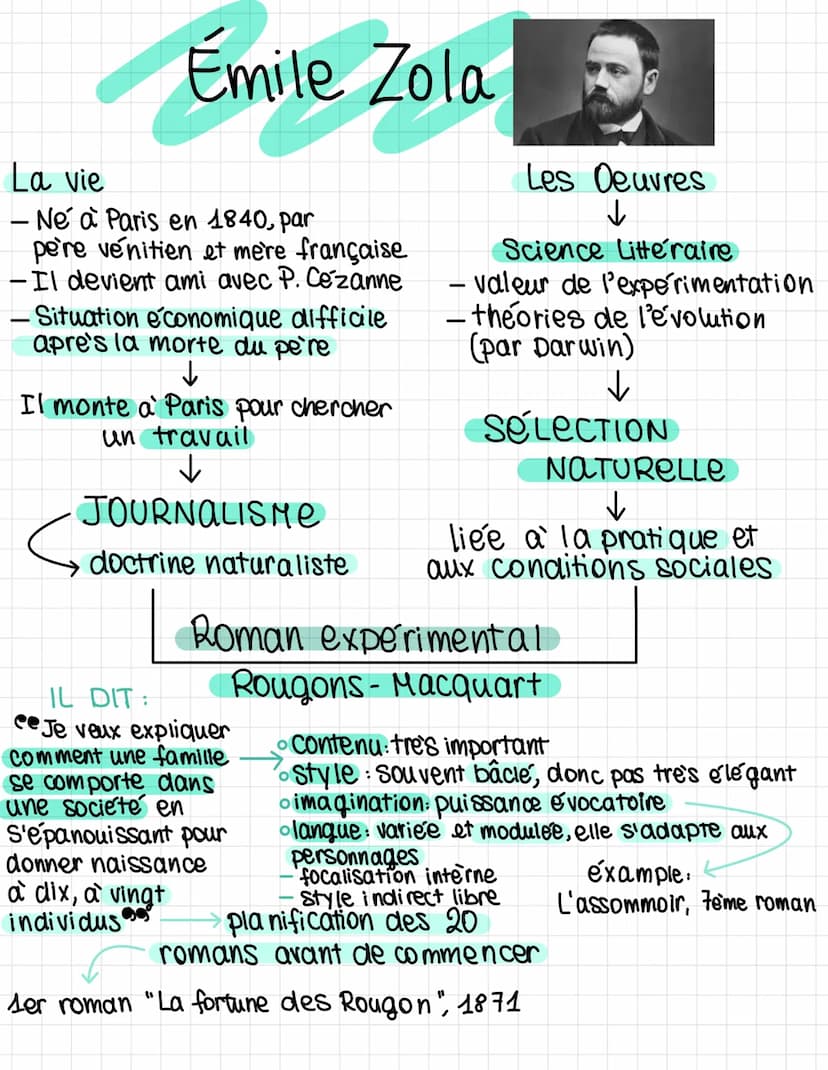 Émile Zola
La vie
– Né à Paris en 1840, par
père vénitien et mère française
– Il devient ami avec P. Cézanne
– Situation économique difficile
après la morte du père
↓
Il monte à Paris pour chercher
un travail
↓
JOURNALISME
→ doctrine naturaliste
Les Oeuvres
↓
Science Littéraire
– valeur de l'expérimentation
– théories de l'évolution
(par Darwin)
↓
SÉLECTION
NATURELLE
↓
liée à la pratique et
aux conditions sociales
Roman expérimental
Rougons - Macquart
IL DIT :
“Je veux expliquer
comment une famille
se comporte dans
une société en
s'épanouissant pour
donner naissance
à dix, à vingt
individus”
→
◦ contenu: très important
◦ style : souvent bâclé, donc pas très élégant
◦ imagination: puissance évocatoire
◦ langue: variée et modulée, elle s'adapte aux
personnages
– focalisation interne
– style indirect libre
éxample:
L'assommoir, 7ème roman
→ planification des 20
romans avant de commencer
1er roman "La fortune des Rougon", 1871